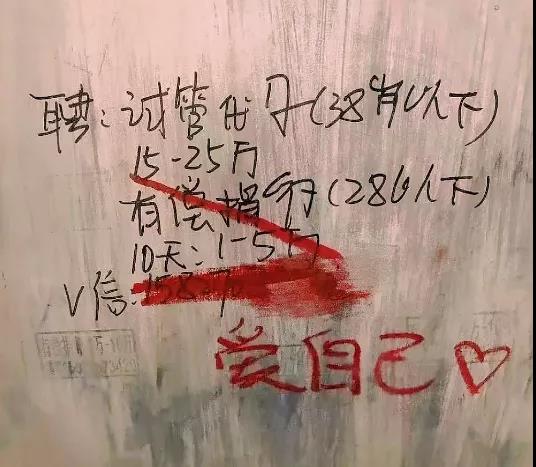 聘：试管代孕(38岁以下)
15-25万
有偿捐卵(28以下)
10天：1-5万
V信：
爱自己♡